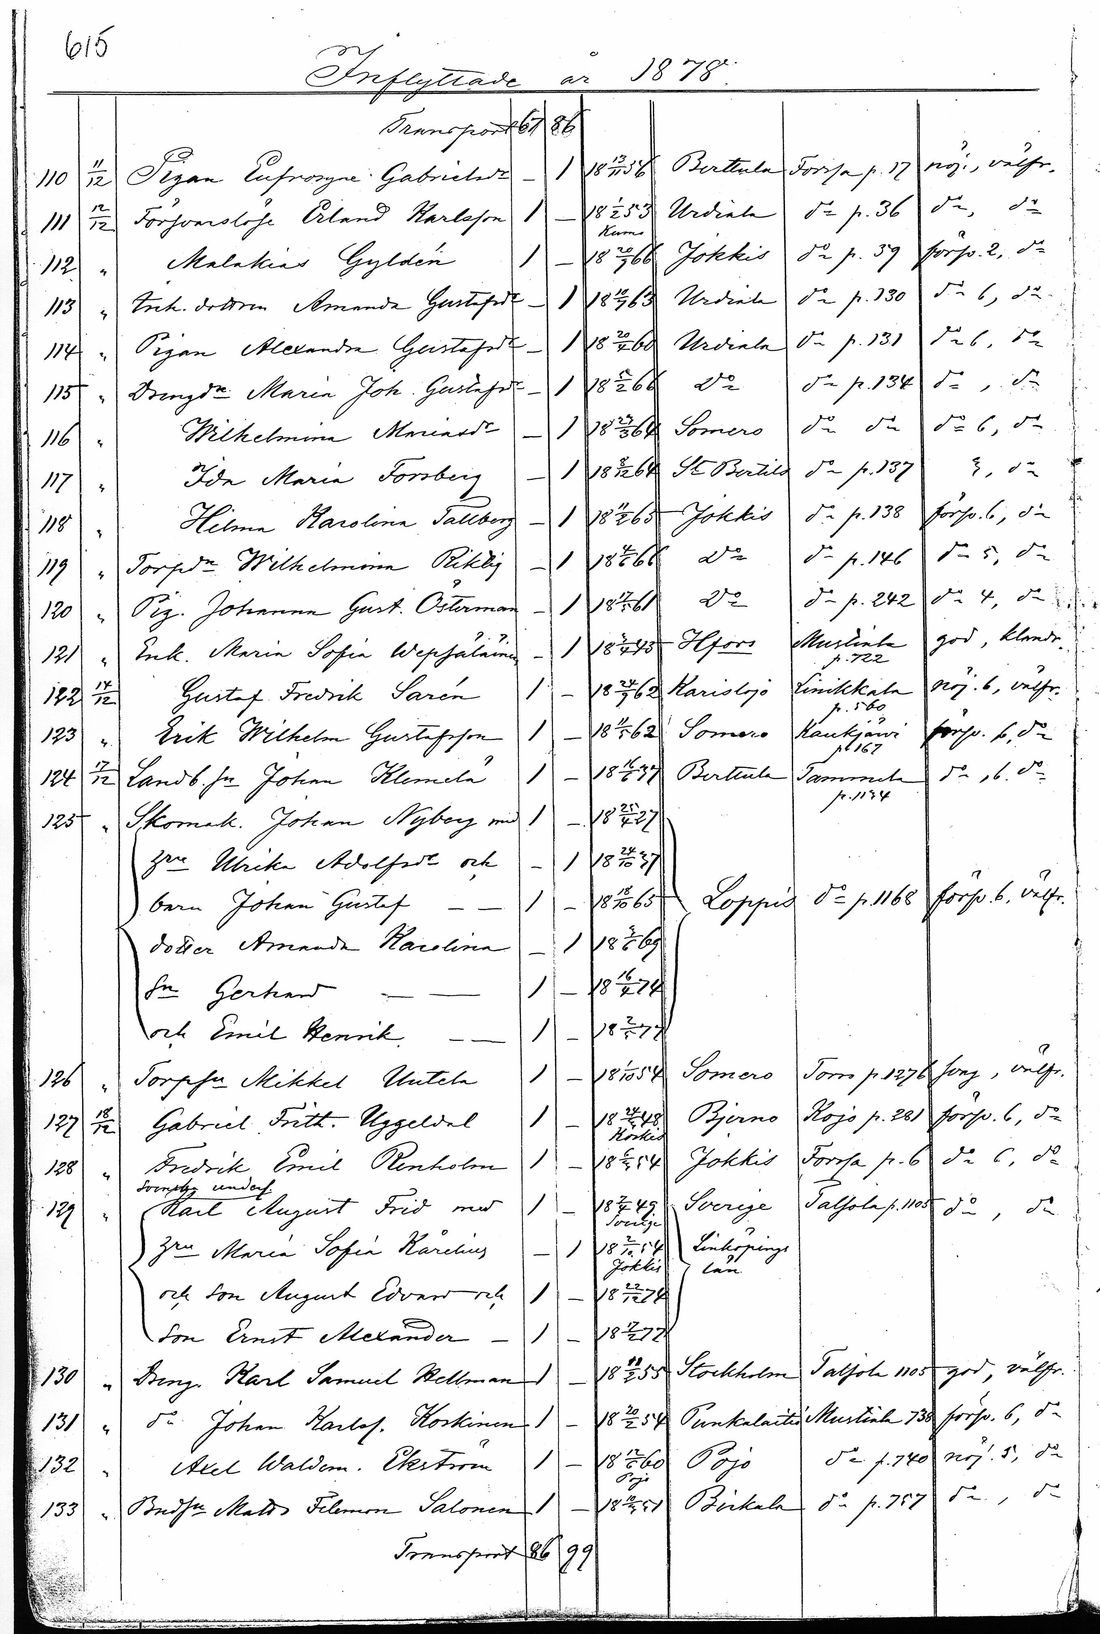 615
Inflyttade år 1878.
Transport 67 86
110 11/12 Pigan Eufrosyne Gabrielsdr – 1 1856 Berttula Forssa p. 17 nöj., välfr.
111 12/12 Försvarslöse Erland Karlsson 1 – 18 1/2 53 Urdiala do p. 36 do, do
Kumo
112 " Malakias Gyldén 1 – 18 20/9 66 Jokkis do p. 59 försv. 2, do
113 " Enk. dottren Amanda Gustafsdr – 1 1863 Urdiala do p. 130 do 6, do
114 " Pigan Alexandra Gustafsdr – 1 18 20/4 60 Urdiala do p. 131 do 6, do
115 " Drengdr Maria Joh. Gustafsdr – 1 1866 Do do p. 134 do , do
116 " Wilhelmina Mariasdr – 1 18 23/3 64 Somero do do do 6, do
117 " Ida Maria Forsberg – 1 1864 St Bertils do p. 137 3, do
118 " Hilma Karolina Tallberg – 1 1865 Jokkis do p. 138 försv. 6, do
119 " Torpdr Wilhelmina Riktig – 1 1866 Do do p. 146 do 5, do
120 " Pig. Johanna Gust. Österman – 1 1861 Do do p. 242 do 4, do
121 " Enk. Maria Sofia Wepsäläinen – 1 Hfors Mustiala god, klandr.
p. 722
122 14/12 Gustaf Fredrik Sarén 1 – 18 24/9 62 Karislojo Linikkala nöj. 6, välfr.
p. 560
123 " Erik Wilhelm Gustafsson 1 – 1862 Somero Kaukjärvi försv. 6, do
p. 167
124 17/12 Landb. sn Johan Klemelä 1 – 1837 Berttula Tammela do , 6. do
p. 1134
125 " Skomak. Johan Nyberg med 1 – 18 25/4 27
hru Ulrika Adolfsdr och – 1 18 24/10 37
barn Johan Gustaf – – 1 – 18 18/10 65 Loppis do p. 1168 försv. 6, välfr.
dotter Amanda Karolina – 1 1869
Sn Gerhard – – 1 – 18 16/4 74
och Emil Henrik – – 1 – 1877
126 " Torpsn Mikkel Untela 1 – 18 1/10 54 Somero Torro p. 1276 svag, välfr.
127 18/12 Gabriel Frith. Uggeldal 1 – 1848 Bjerno Kojo p. 281 försv. 6, do
Koskis
128 " Fredrik Emil Renholm 1 – 1854 Jokkis Forssa p. 6 do 6, do
Svensk unders.
129 " Karl August Frid med 1 – 1849 Sverige Taljola p. 1105 do , do
Sverige
hru Maria Sofia Karelius – 1 1854 Linköpings
Jokkis län
och son August Edvard och 1 – 18 22/12 74
Son Ernst Alexander – 1 – 1877
130 " Dreng. Karl Samuel Hellman 1 – 1855 Stockholm Taljola 1105 god, välfr.
131 " do Johan Karlsf. Koskinen 1 – 18 20/2 54 Punkalaitio Mustiala 738 försv. 6, do
132 " Axel Waldem. Ekström 1 – 1860 Pojo do p. 740 nöj. 5, do
Pojo
133 " Bndsn Matts Filemon Salonen 1 – 1851 Birkala do p. 757 do , do
Transport 86 99